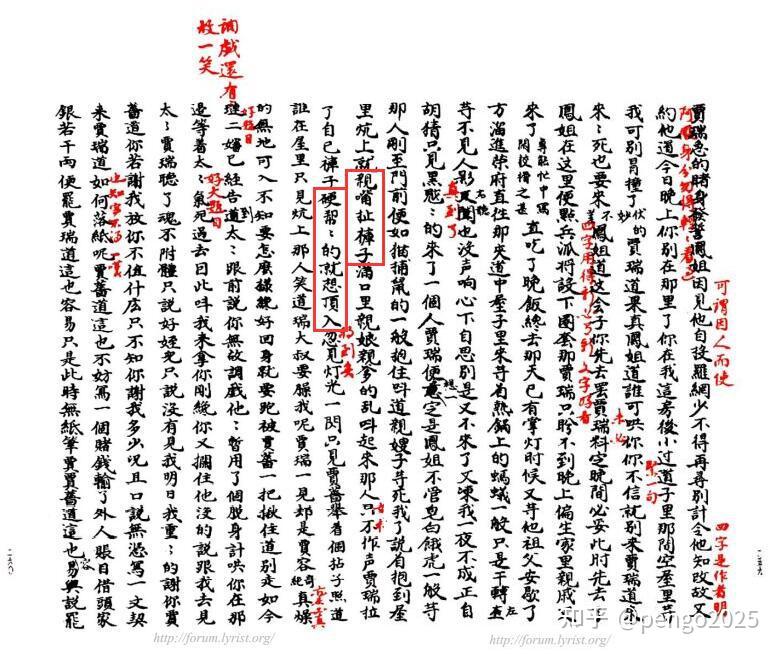 可謂因人而使
四字是作者明
賈瑞急的賭身發誓鳳姐因見他自投羅網少不得再尋別計令他知改故又
約他道今日晚上你別在那里了你在我這房後小过道子里那間空屋里等
我可別冐撞了賈瑞道果真鳳姐道誰可哄你你不信就別来賈瑞道来
未必
緊一句
来:死也要来鳳姐道这会子你先去罢賈瑞料定晚間必妥此时先去了
四字用得
文字好看
鳳姐在这里便點兵派將設下圈套那賈瑞只盼不到晚上偏生家里親戚又
專能忙中寫閑
来了直吃了晚飯纔去那天已有掌灯时候又等他祖父安歇了
方溜進榮府直往那夹道中屋子里来等着热鍋上的螞蟻一般只是干轉左
真到了
等不見人影右聽也没声响心下自思別是又不来了又凍我一夜不成正自
胡猜只見黑魆:的来了一個人賈瑞便意定是鳳姐不管皂白餓虎一般等
那人剛至門前便如猫捕鼠的一般抱住叫道親嫂子等死我了說着抱到屋
里炕上就親嘴扯褲子滿口里親娘親爹的乱叫起来那人只不作声賈瑞拉
了自己褲子硬帮:的就想頂入忽見灯光一閃只見賈薔舉着個拈子照道
誰在屋里只見炕上那人笑道瑞大叔要臊我呢賈瑞一見却是賈容真燥
調戲還有
故一笑
的無地可入不知要怎麽樣纔好回身就要跑被賈薔一把揪住道別走如今
好題目
璉二嬸已經告到太:跟前說你無故調戲他:暫用了個脱身計哄你在那
好大題目
邊等着太:氣死过去因此叫我来拿你剛纔你又攔住他没的說跟我去見
太:賈瑞聴了魂不附體只說好姪兒只說没有見我明日我重:的謝你賈
薔道你若謝我放你不值什庅只不知你謝我多少况且口說無憑寫一文契
来賈瑞道如何落紙呢賈薔道這也不妨寫一個賭錢輸了外人賬目借頭家
銀若干兩便罷賈瑞道這也容易只是此時無紙筆賈薔道這也易與說罷
知乎 @pengo2025
http://forum.lyrist.org/
http://forum.lyrist.org/